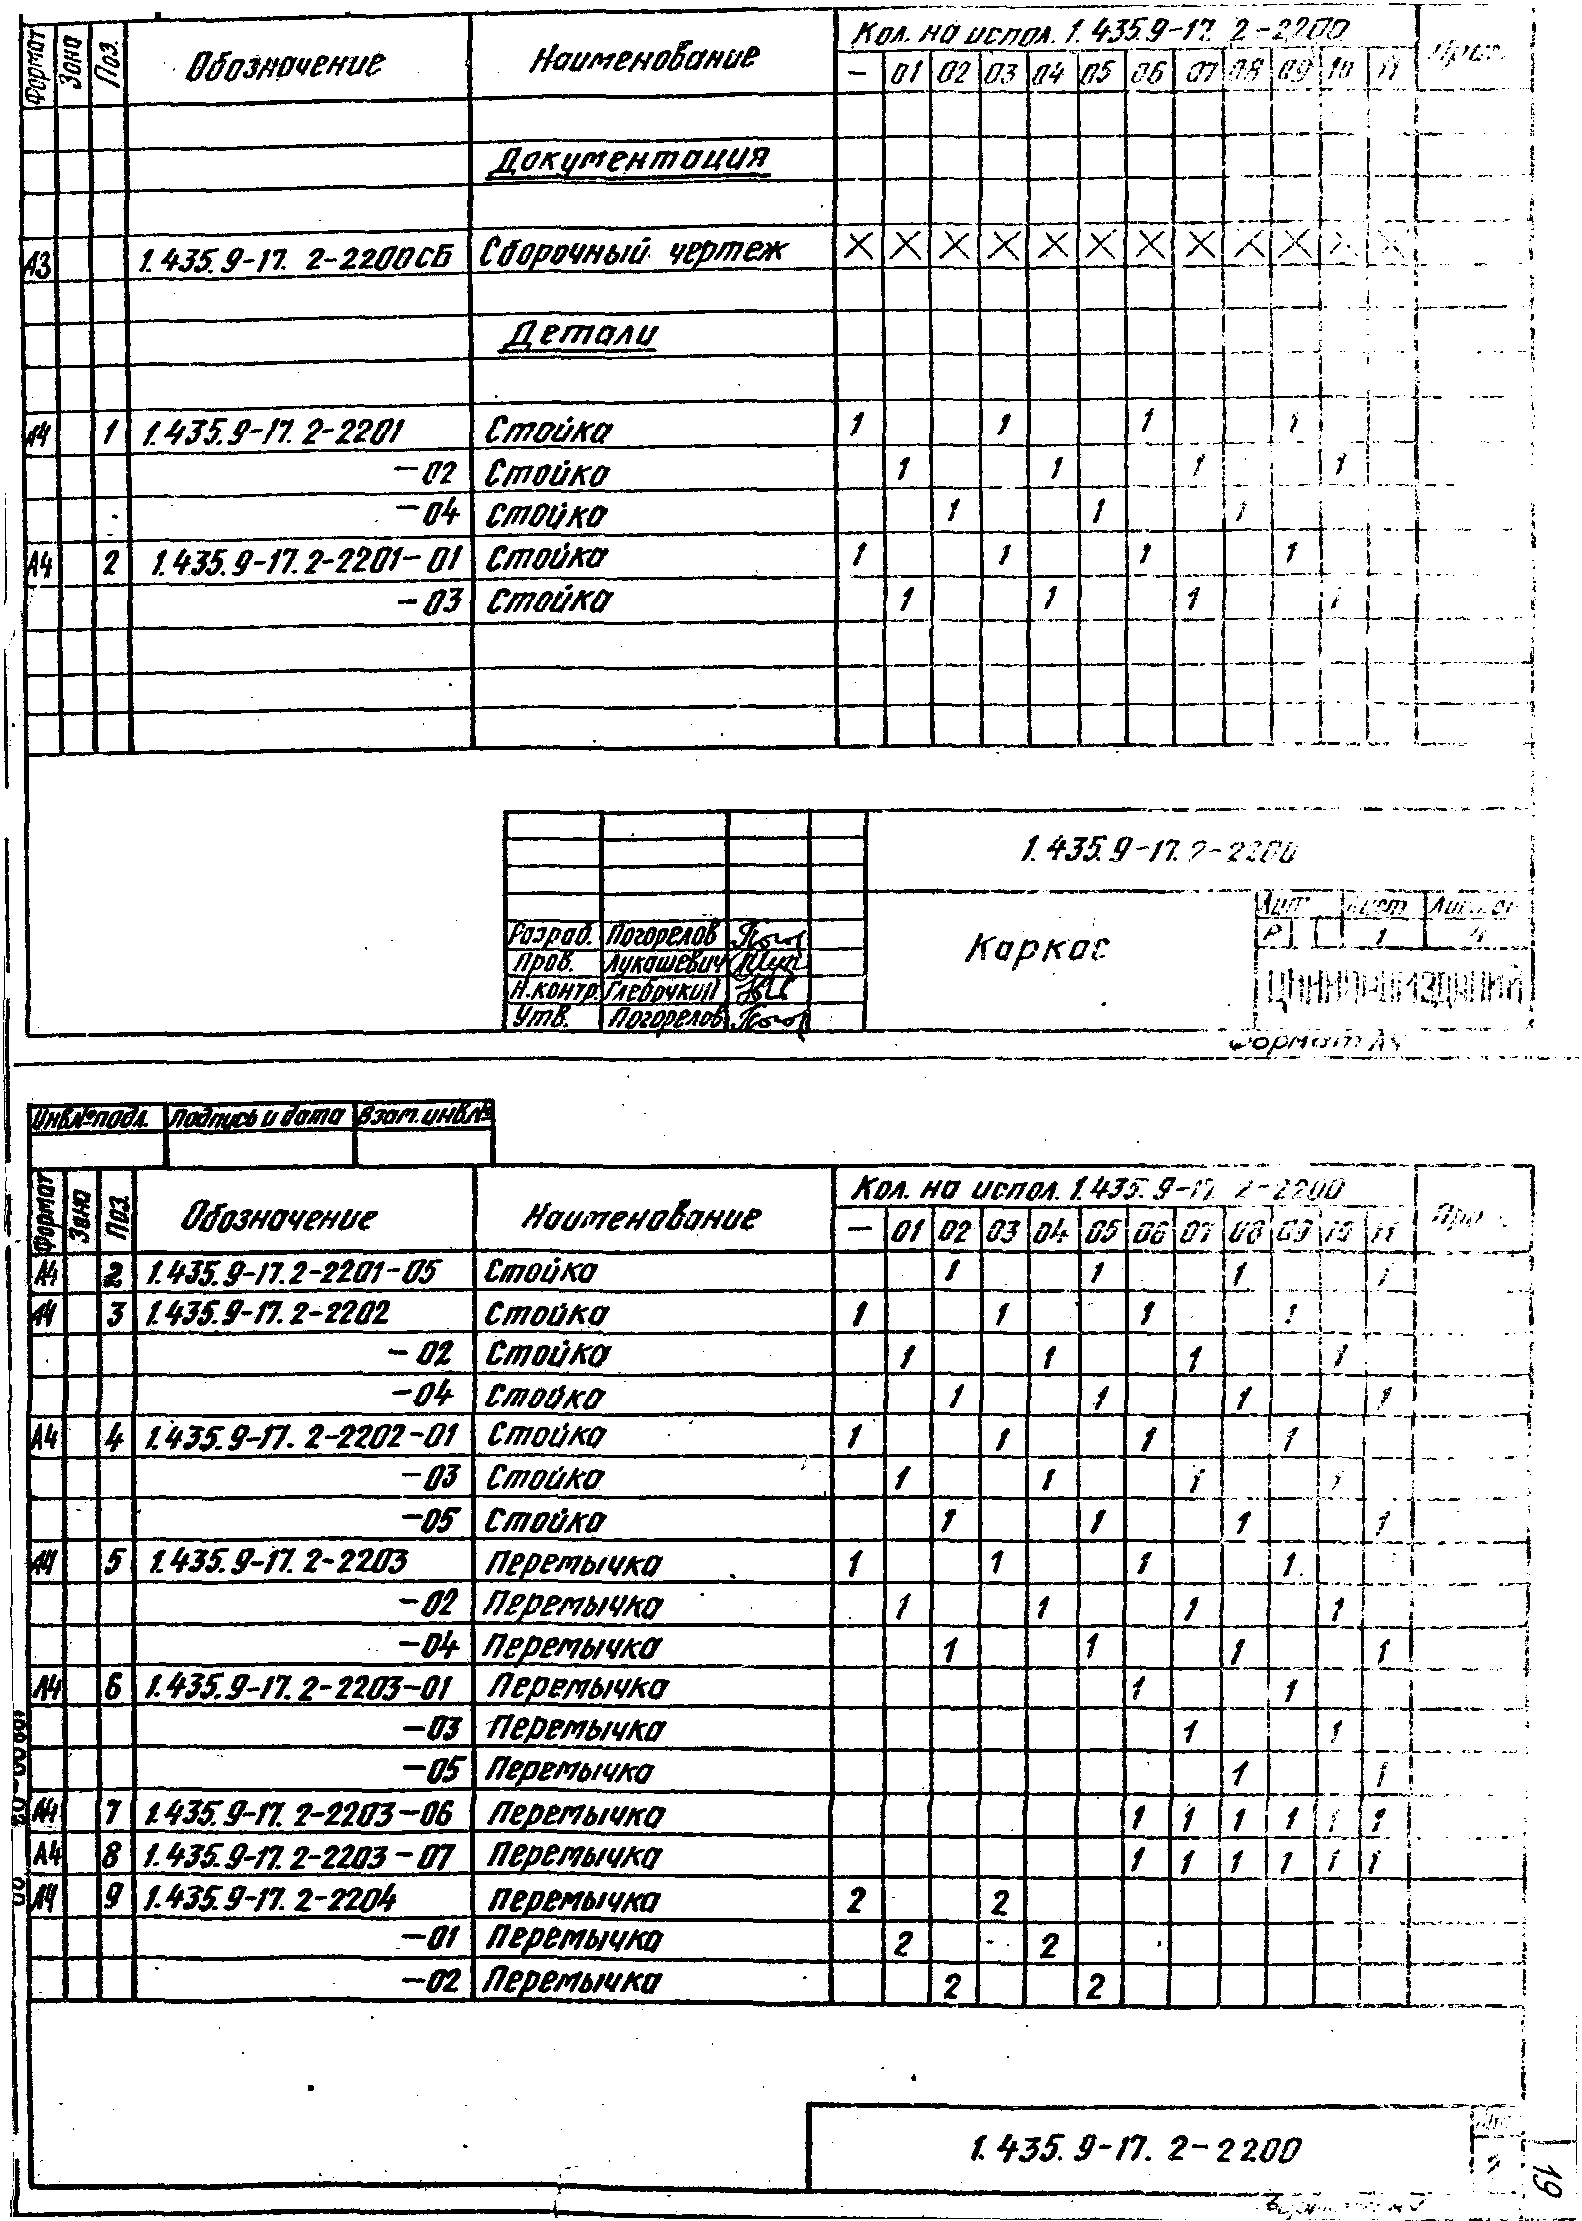 Формат Зона Поз. Обозначение Наименование Кол. на испол. 1.435.9-17. 2-2200 Прим.
— 01 02 03 04 05 06 07 08 09 10 11
Документация
А3 1.435.9-17. 2-2200СБ Сборочный чертеж X X X X X X X X X X X X
Детали
А4 1 1.435.9-17. 2-2201 Стойка 1 1 1 1
-02 Стойка 1 1 1 1
-04 Стойка 1 1 1
А4 2 1.435.9-17.2-2201-01 Стойка 1 1 1 1
-03 Стойка 1 1 1 1
1.435.9-17.2-2200
Каркас
Лит. Лист Листов
Р 1
Разраб. Погорелов
Пров. Лукашевич
Н.контр.
Утв. Погорелов
ЦНИИПРОМЗДАНИЙ
Формат А4
Инв.№ подл. Подпись и дата Взам.инв.№
Формат Зона Поз. Обозначение Наименование Кол. на испол. 1.435.9-17. 2-2200
— 01 02 03 04 05 06 07 08 09 10 11
А4 2 1.435.9-17.2-2201-05 Стойка 1 1 1 1
А4 3 1.435.9-17.2-2202 Стойка 1 1 1 1
-02 Стойка 1 1 1 1
-04 Стойка 1 1 1 1
А4 4 1.435.9-17. 2-2202-01 Стойка 1 1 1 1
-03 Стойка 1 1 1 1
-05 Стойка 1 1 1 1
А4 5 1.435.9-17. 2-2203 Перемычка 1 1 1 1
-02 Перемычка 1 1 1 1
-04 Перемычка 1 1 1 1
А4 6 1.435.9-17. 2-2203-01 Перемычка 1 1
-03 Перемычка 1 1
-05 Перемычка 1 1
А4 7 1.435.9-17. 2-2203-06 Перемычка 1 1 1 1 1 1
А4 8 1.435.9-17. 2-2203-07 Перемычка 1 1 1 1 1 1
А4 9 1.435.9-17. 2-2204 Перемычка 2 2
-01 Перемычка 2 2
-02 Перемычка 2 2
1.435.9-17. 2-2200
19